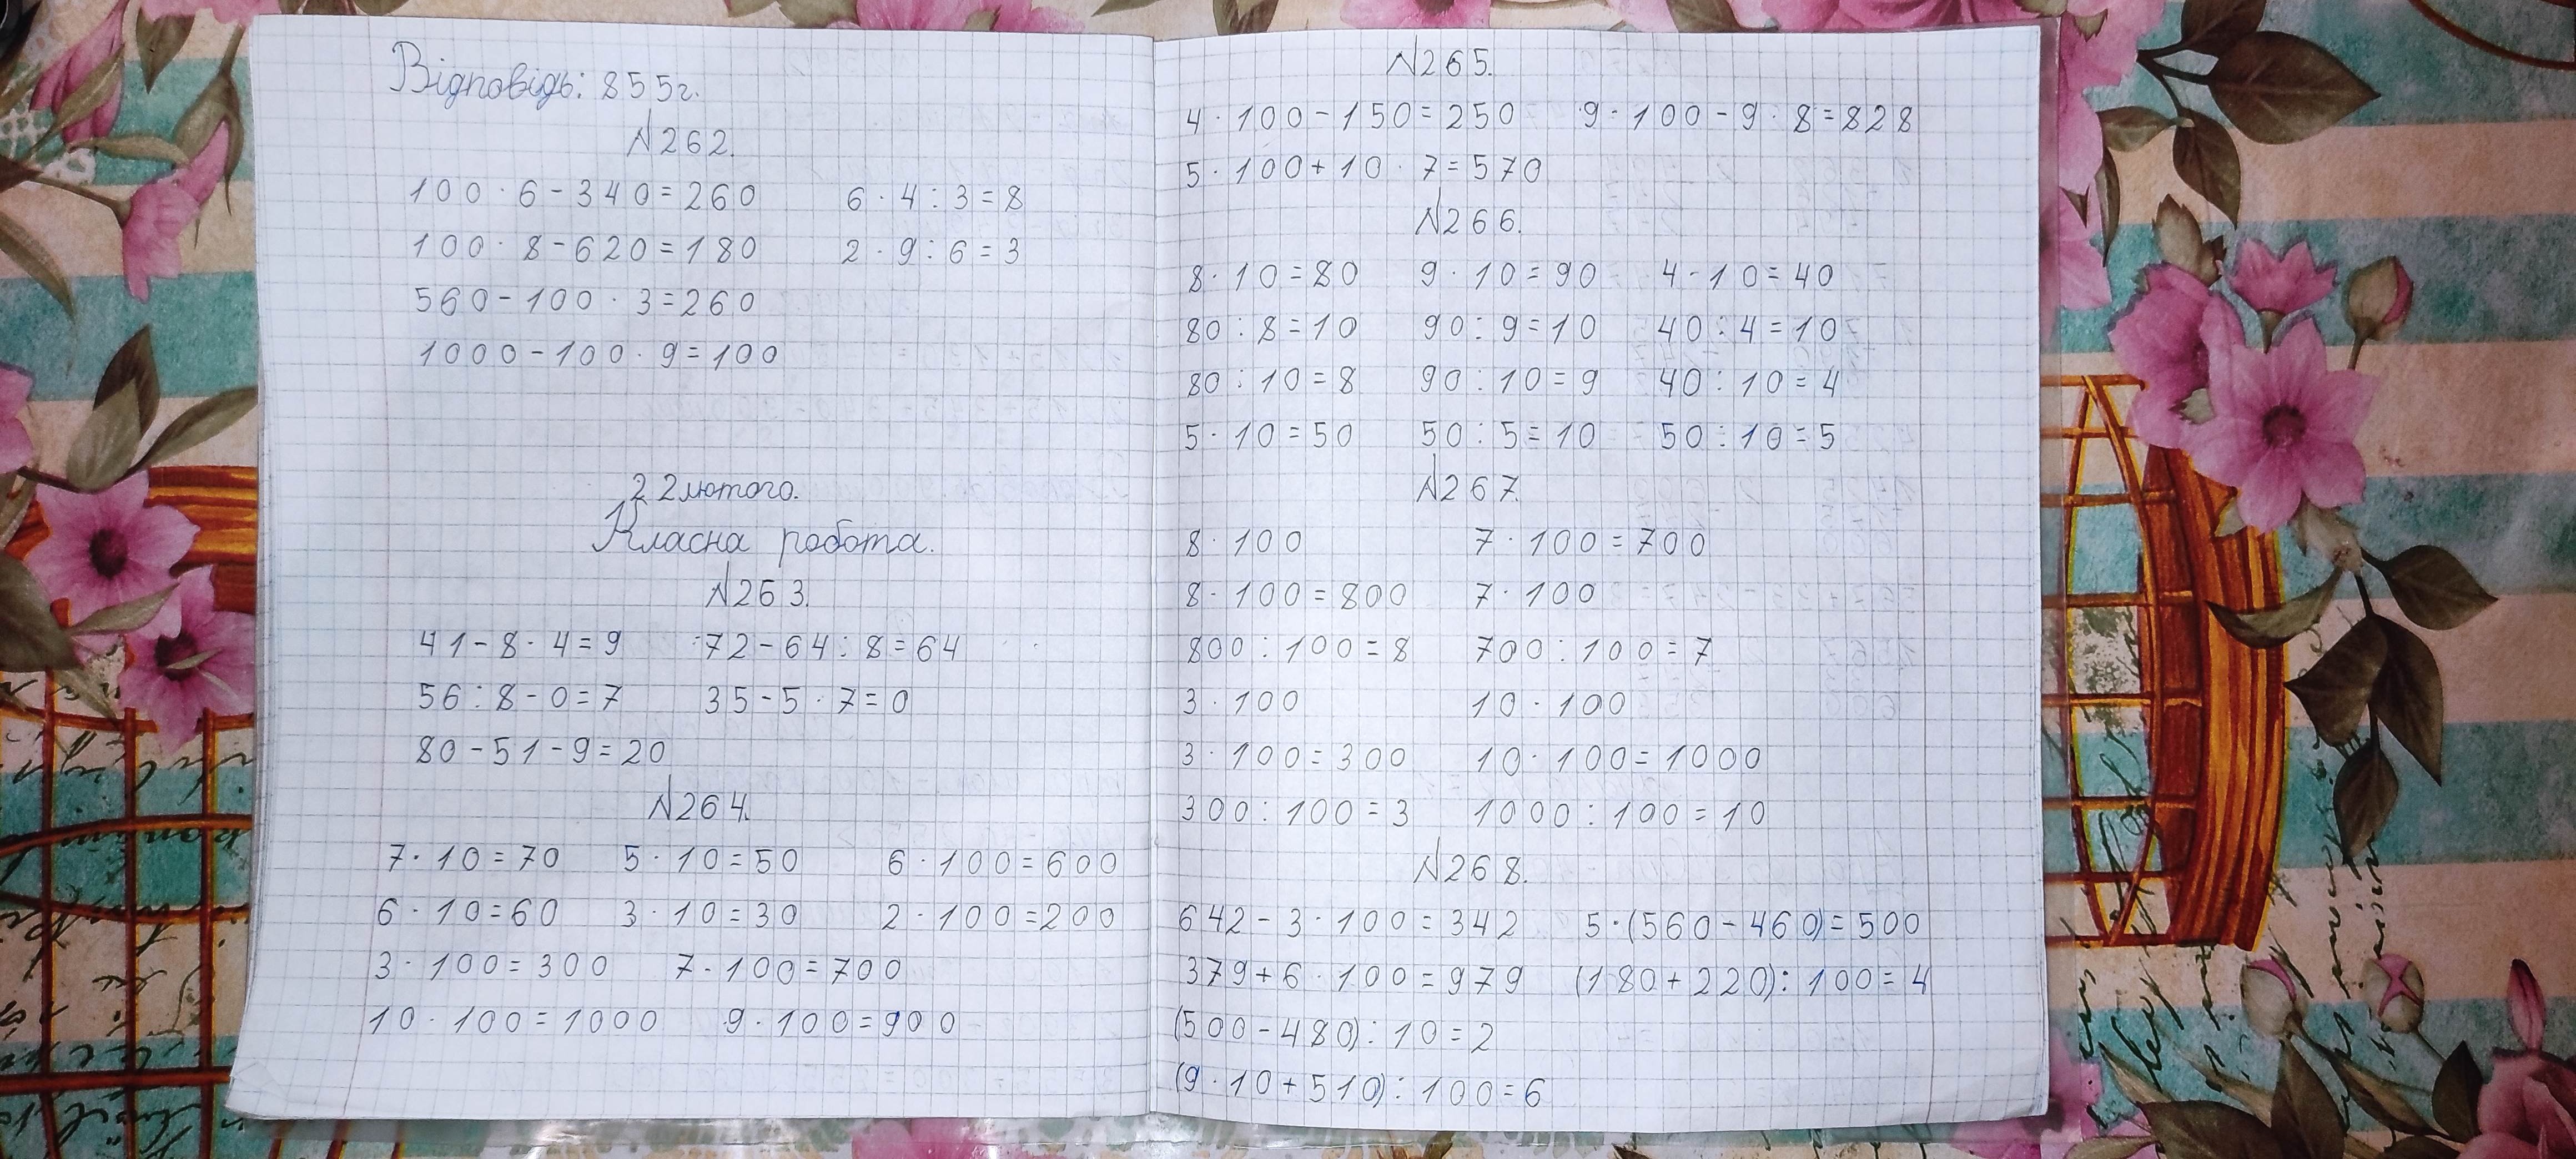 Відповідь: 855г.
№262.
100 · 6 - 340 = 260 6 · 4 : 3 = 8
100 · 8 - 620 = 180 2 · 9 : 6 = 3
560 - 100 · 3 = 260
1000 - 100 · 9 = 100
22 лютого.
Класна робота.
№263.
41 - 8 · 4 = 9 72 - 64 : 8 = 64
56 : 8 - 0 = 7 35 - 5 · 7 = 0
80 - 51 - 9 = 20
№264.
7 · 10 = 70 5 · 10 = 50 6 · 100 = 600
6 · 10 = 60 3 · 10 = 30 2 · 100 = 200
3 · 100 = 300 7 · 100 = 700
10 · 100 = 1000 9 · 100 = 900
№265.
4 · 100 - 150 = 250 9 · 100 - 9 · 8 = 828
5 · 100 + 10 · 7 = 570
№266.
8 · 10 = 80 9 · 10 = 90 4 · 10 = 40
80 : 8 = 10 90 : 9 = 10 40 : 4 = 10
80 : 10 = 8 90 : 10 = 9 40 : 10 = 4
5 · 10 = 50 50 : 5 = 10 50 : 10 = 5
№267.
8 · 100 7 · 100 = 700
8 · 100 = 800 7 · 100
800 : 100 = 8 700 : 100 = 7
3 · 100 10 · 100
3 · 100 = 300 10 · 100 = 1000
300 : 100 = 3 1000 : 100 = 10
№268.
642 - 3 · 100 = 342 5 · (560 - 460) = 500
379 + 6 · 100 = 979 (180 + 220) : 100 = 4
(500 - 480) : 10 = 2
(9 · 10 + 510) : 100 = 6